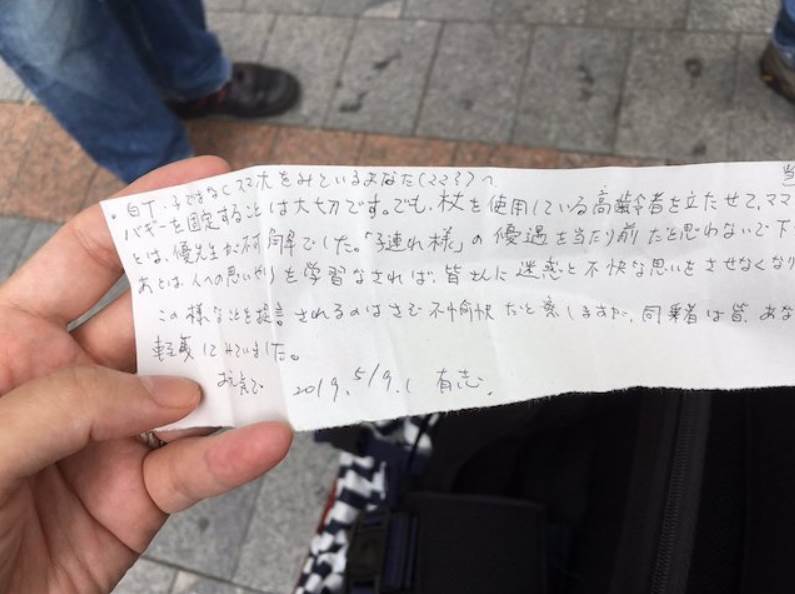 子ではなくスマホをみているあなた(ママ?)へ 当
バギーを固定することは大切です。でも、杖を使用している高齢者を立たせて、ママ
とは、優先 解でした。「子連れ様」の優遇を当たり前だと思わないで下
あとは、人への思いやりを学習なされば、皆さんに迷惑と不快な思いをさせなくなり
この様なことを提言されるのはさぞ不愉快だと察しますが、同乗者は皆、あな
軽蔑してみていました。
お元気で 2019. 5/9. 有志.